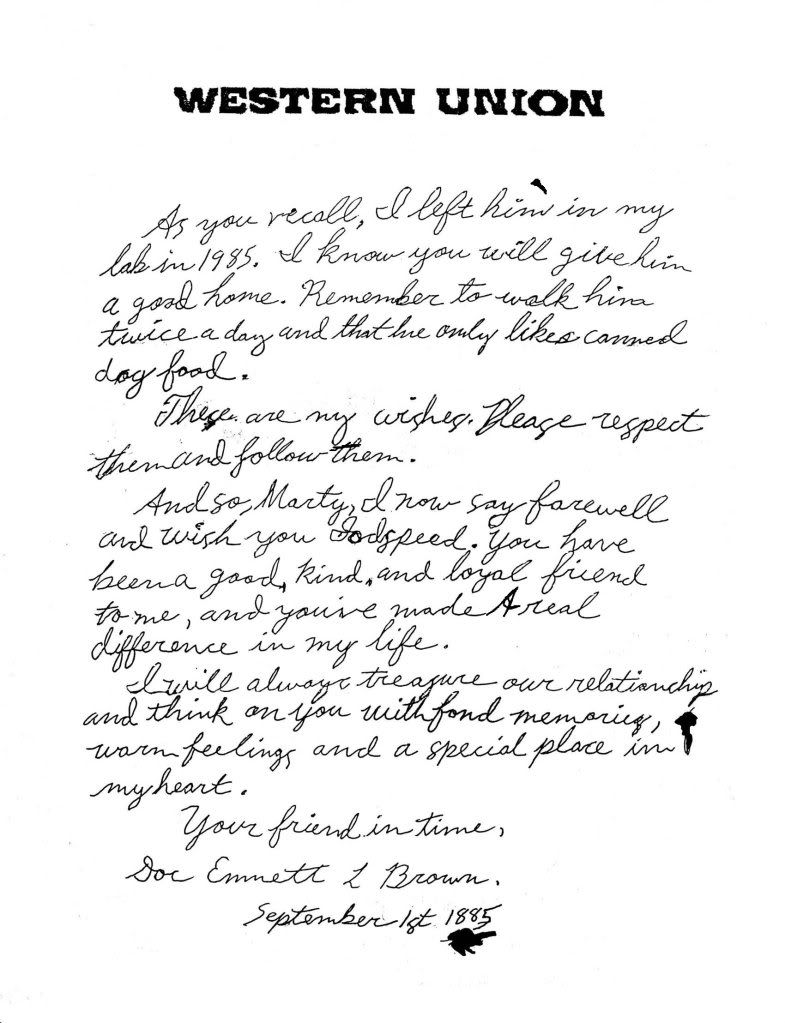 WESTERN UNION
As you recall, I left him in my
lab in 1985. I know you will give him
a good home. Remember to walk him
twice a day and that he only likes canned
dog food.
These are my wishes. Please respect
them and follow them.
And so, Marty, I now say farewell
and wish you Godspeed. You have
been a good, kind, and loyal friend
to me, and you've made A real
difference in my life.
I will always treasure our relationship
and think on you with fond memories,
warm feelings and a special place in
my heart.
Your friend in time,
Doc Emmett L Brown.
September 1st 1885